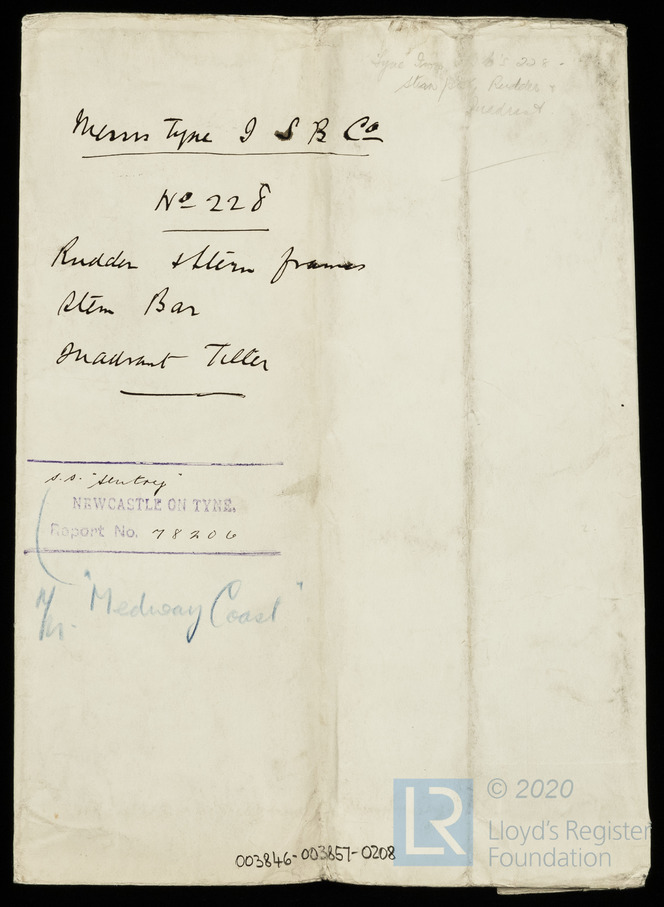 Messrs Tyne I S B Co
No 228
Rudder & Stern frames
Stem Bar
Quadrant Tiller
s.s. "Sentry"
NEWCASTLE ON TYNE.
Report No. 78206
"Medway Coast"
Tyne 228
Stem Bar, Rudder &
Quadrant
003846-003857-0208
LR
© 2020
Lloyd's Register
Foundation